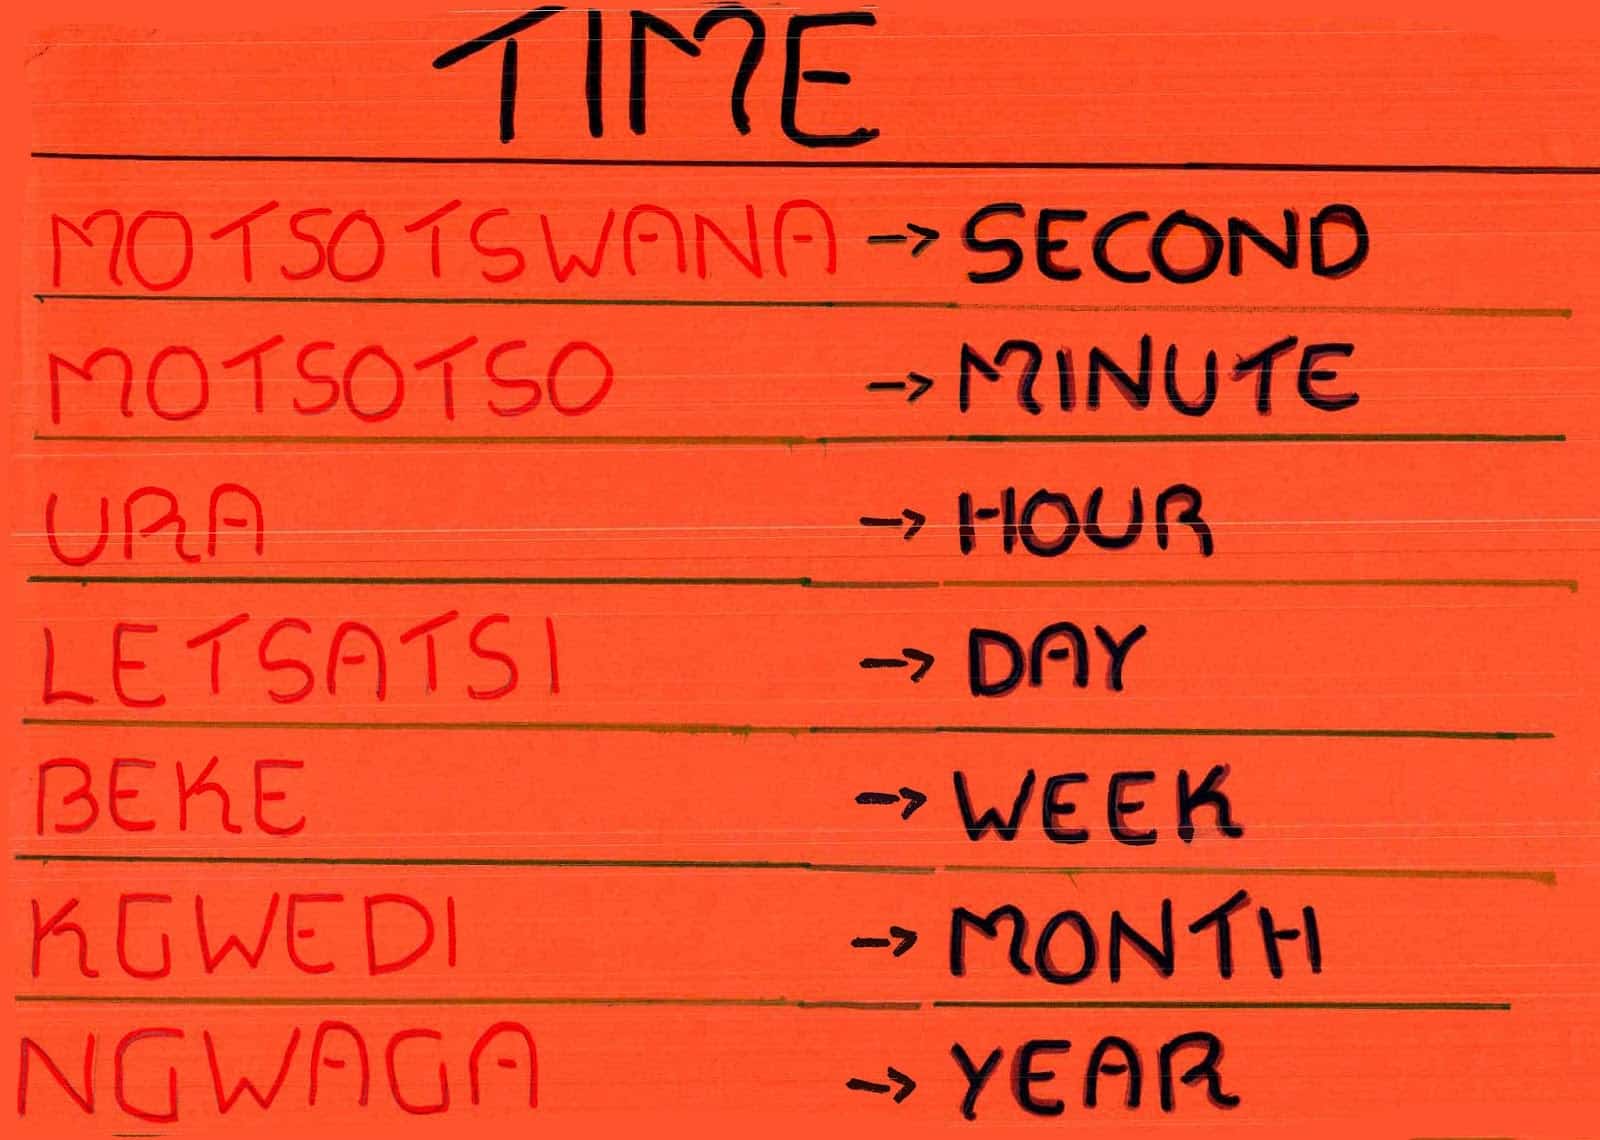 TIME
MOTSOTSWANA → SECOND
MOTSOTSO → MINUTE
URA → HOUR
LETSATSI → DAY
BEKE → WEEK
KGWEDI → MONTH
NGWAGA → YEAR